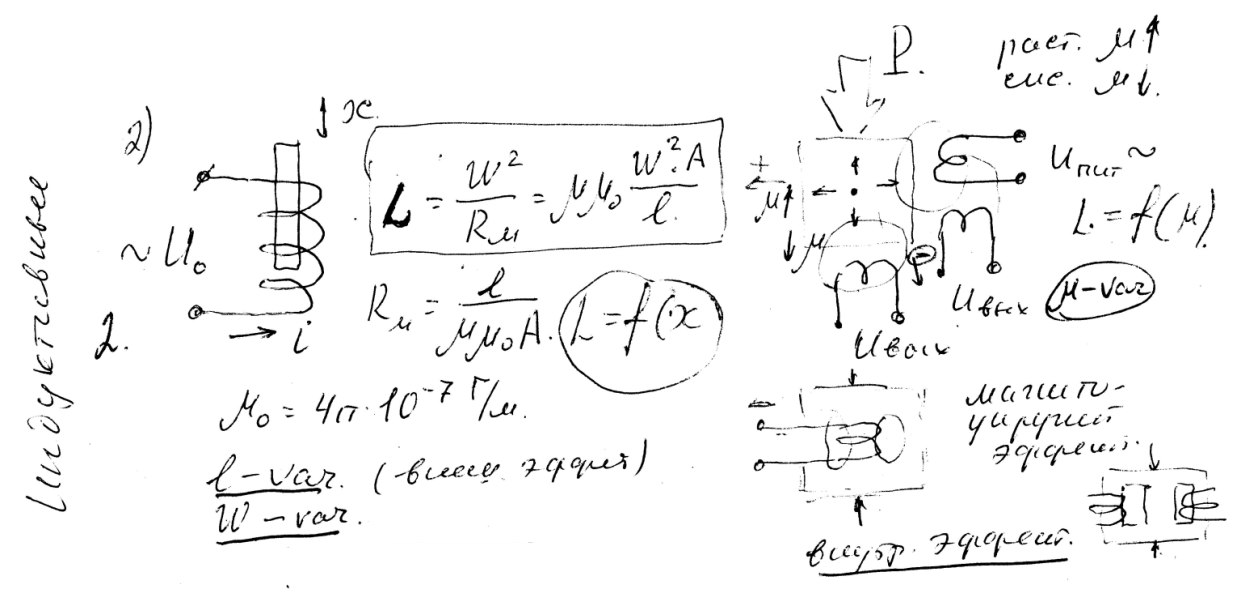 Индуктивные
2)
x.
~ U₀
2.
i
L = W²/Rм = μμ₀ W²·A/l.
Rм = l/(μμ₀A).
L = f(x
μ₀ = 4π·10⁻⁷ Г/м.
l – var. (внешн. эффект)
W – var.
P.
раст. μ↑
сж. μ↓.
+
μ↑
↓μ
−
Uпит ~
L = f(μ).
Uвых
μ – var
Uвых
магнито-
упругий
эффект.
внутр. эффект.